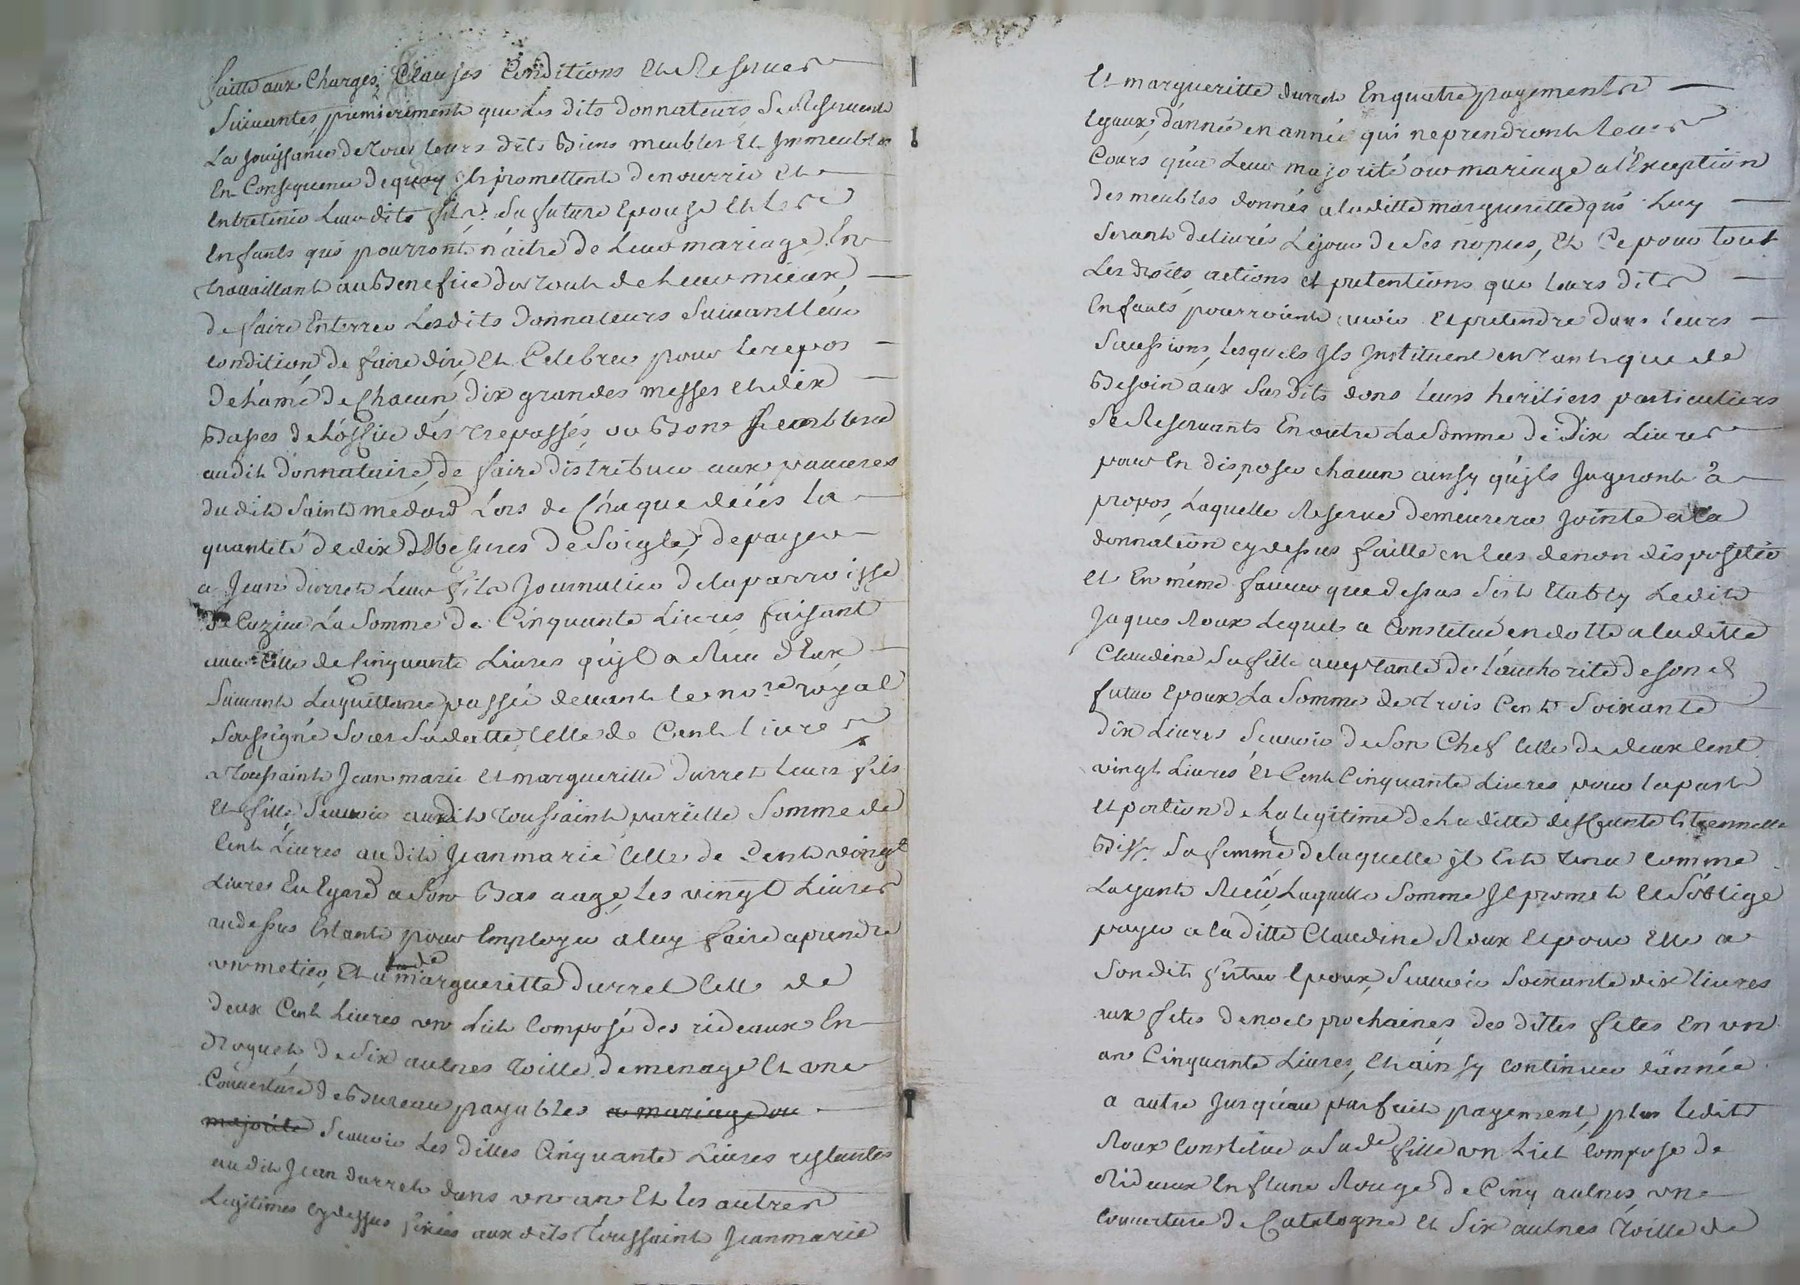 faitte aux Charges, Clauses Conditions Et Reserves
Suivantes, premierement que Les dits donnateurs, Se Reservent
La jouissance de Tous leurs dits Biens meubles Et Immeubles
En Consequence de quoy Ils promettent de nourrir et
entretenir Leur dits fils, Sa future Epouse Et les
Enfants qui pourront naitre de Leur mariage, En
travaillant au Benefice du tout de Leur mieux,
de faire Enterrer Lesdits Donnateurs Suivant leur
condition de faire dire Et Celebrer pour le repos
de L'ame de Chacun dix grandes messes et dix
Basses de L'office des Trepassés, ou Bon Semblera
audit donnataire, de faire distribuer aux pauvres
du dit Saint medard Lors de Chaque decés la
quantité de dix Mesures de Soigle, de payer
a Jean durret Leur fils Journalier de la parroisse
de Luzieu La Somme de Cinquante Livres faisant
avec Celle de Cinquante Livres qu'jl a Reçu d'Eux
Suivant La quittance passée devant le no.re royal
Soussigné Celle de Cent livres
a Toussaint Jean marie et margueritte durret leurs fils
Et fille, Scavoir audit Toussaint pareille Somme de
Cent Livres au dit Jean marie Celle de Cent vingt
Livres Eu Egard a Son Bas aage, Les vingt Livres
audessus Estants pour Employer a luy faire aprendre
un metier, Et a la de margueritte Durret Celle de
deux Cent Livres un Lict Composé des rideaux En
Droguet de Six aulnes Toille de menage et une
Couverture de Bureau payables a mariage ou
majorité Scavoir Les dittes Cinquante Livres restantes
audit Jean durret dans un an Et les autres
Legitimes cydessus fixées aux dits Toussaint Jean marie
Et margueritte durret En quatre payements
Egaux, d'année en année qui ne prendront leur
Cours qu'a Leur majorité ou mariage a l'Exception
des meubles donnés a laditte margueritte qui Luy
Seront delivrés Le jour de Ses nopces, Et Ce pour tout
Les droits, actions et pretentions que leurs dits
Enfants pourroient avoir Et pretendre dans leurs
Successions, lesquels Ils Instituent en tant que de
Besoin aux Susdits dons leurs heritiers particuliers
Se Reservants En outre La Somme de Dix Livres
pour En disposer chacun ainsy qu'jls Jugeront à
propos, Laquelle Reserve demeurera jointe a la
donnation cy dessus faitte en Cas de non disposition
et En même faveur que dessus S'est Etably Ledit
Jaques Roux Lequel a Constitué en dotte a laditte
Claudine Sa fille acceptante de l'authorité de son d
futur Epoux La Somme de Trois Cent Soixante
dix Livres Scavoir de Son Chef Celle de deux Cent
vingt Livres Et Cent Cinquante Livres pour la part
et portion de La legitime de La ditte deffunte Etiennette
Sa femme de laquelle jl Est tenu Comme
Layant Reçu, Laquelle Somme Il promet Et S'oblige
payer a la ditte Claudine Roux Et pour Elle a
Son dit futur Epoux, Scavoir Soixante dix livres
aux fetes de noel prochaines des dittes fetes En un
an Cinquante Livres, Et ainsy continuer d'année
a autre Jusqu'au parfait payement, plus ledit
Roux Constitue a Sa de fille un Lict Composé de
Rideaux En flane Rouge de Cinq aulnes une
Couverture de Catalogne et Six aulnes Toille de